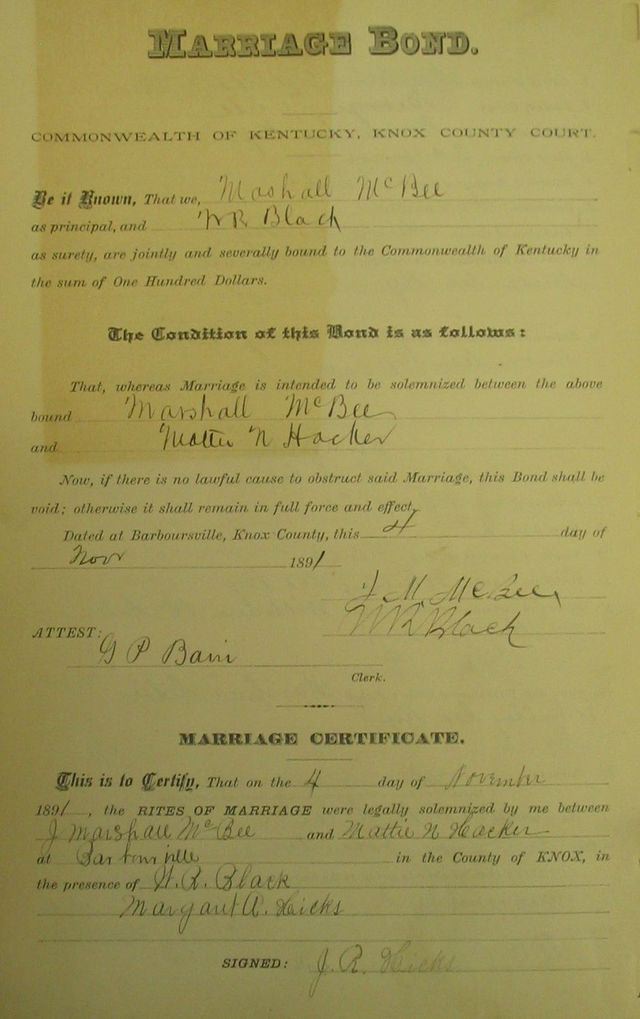 MARRIAGE BOND.
COMMONWEALTH OF KENTUCKY, KNOX COUNTY COURT.
Be it Known, That we, Mashall McBee
as principal, and W R Black
as surety, are jointly and severally bound to the Commonwealth of Kentucky in
the sum of One Hundred Dollars.
The Condition of this Bond is as follows:
That, whereas Marriage is intended to be solemnized between the above
bound Marshall McBee
and Mattie N Hacker
Now, if there is no lawful cause to obstruct said Marriage, this Bond shall be
void; otherwise it shall remain in full force and effect.
Dated at Barboursville, Knox County, this 4 day of
Nov 1891
J M McBee
W R Black
ATTEST:
G P Bain
Clerk.
MARRIAGE CERTIFICATE.
This is to Certify, That on the 4 day of November
1891, the RITES OF MARRIAGE were legally solemnized by me between
J Marshall McBee and Mattie N Hacker
at in the County of KNOX, in
the presence of W. R. Black
Margaret A. Hicks
SIGNED: J. R. Hicks